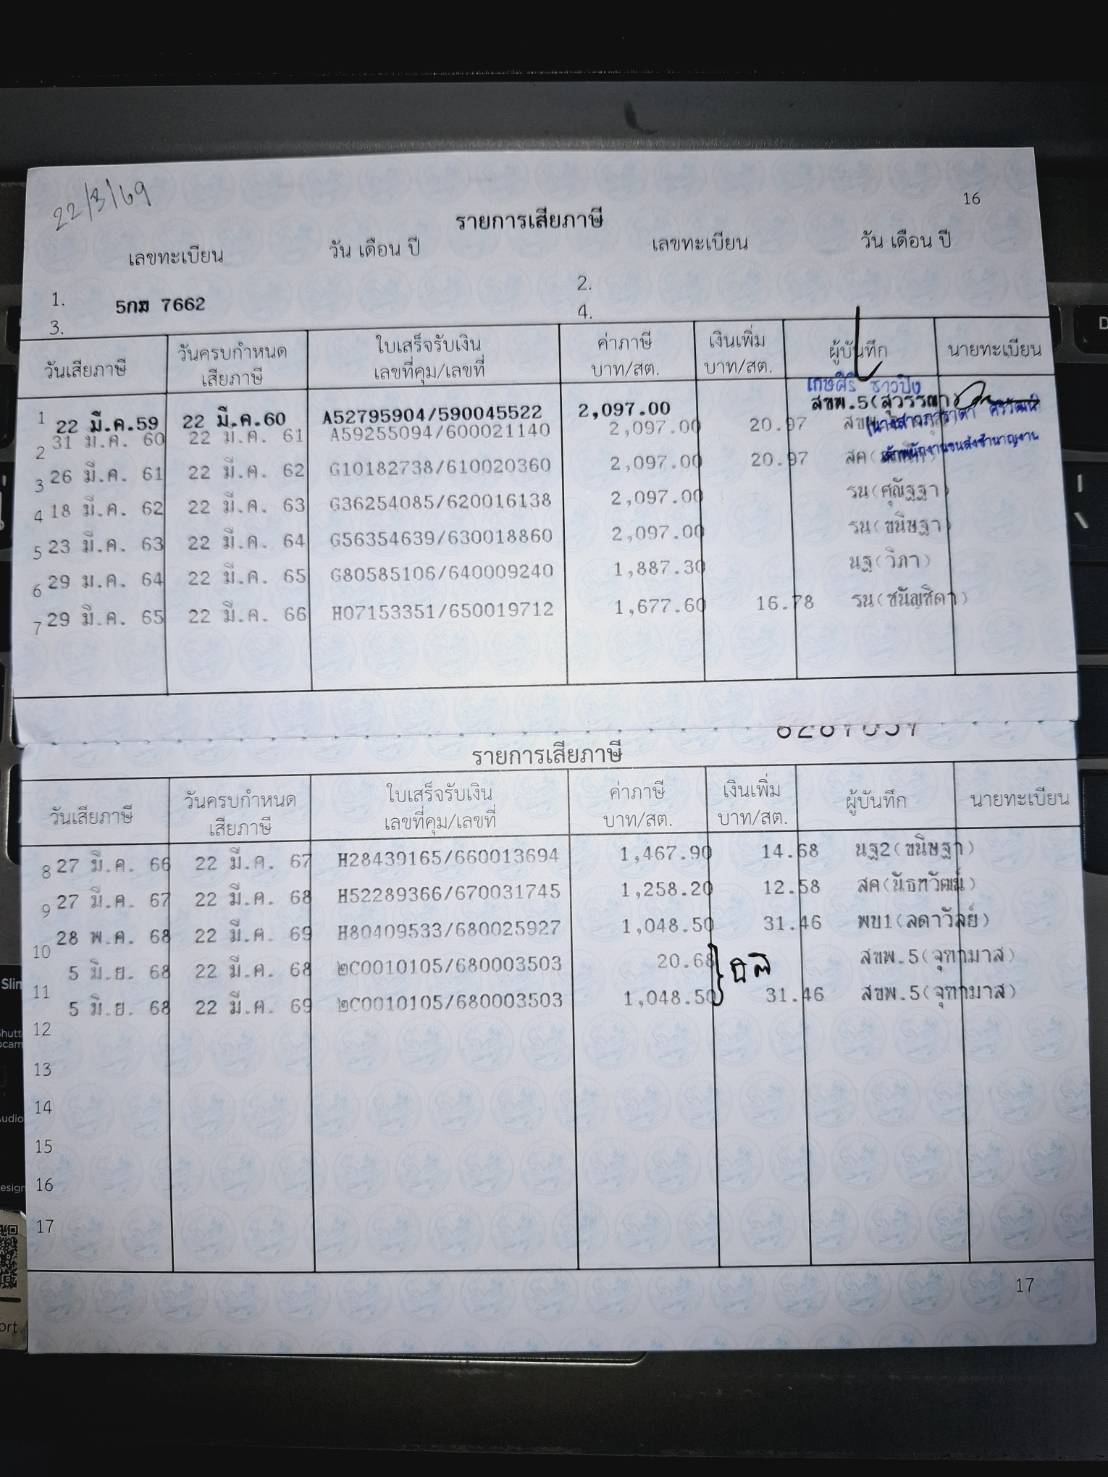 22/3/69
16
รายการเสียภาษี
เลขทะเบียน วัน เดือน ปี เลขทะเบียน วัน เดือน ปี
1. 5กฆ 7662 2.
3. 4.
วันเสียภาษี วันครบกำหนดเสียภาษี ใบเสร็จรับเงิน เลขที่คุม/เลขที่ ค่าภาษี บาท/สต. เงินเพิ่ม บาท/สต. ผู้บันทึก นายทะเบียน
เกษศิริ ชาวปิง
1 22 มี.ค.59 22 มี.ค.60 A52795904/590045522 2,097.00 สขพ.5(สุวรรณา)
2 31 ม.ค. 60 22 มี.ค. 61 A59255094/600021140 2,097.00 20.97
3 26 มี.ค. 61 22 มี.ค. 62 G10182738/610020360 2,097.00 20.97 สค
4 18 มี.ค. 62 22 มี.ค. 63 G36254085/620016138 2,097.00 รน(ศุณัฐฐา)
5 23 มี.ค. 63 22 มี.ค. 64 G56354639/630018860 2,097.00 รน(ขนิษฐา)
6 29 ม.ค. 64 22 มี.ค. 65 G80585106/640009240 1,887.30 นฐ(วิภา)
7 29 มี.ค. 65 22 มี.ค. 66 H07153351/650019712 1,677.60 16.78 รน(ชนัญชิดา)
รายการเสียภาษี
วันเสียภาษี วันครบกำหนดเสียภาษี ใบเสร็จรับเงิน เลขที่คุม/เลขที่ ค่าภาษี บาท/สต. เงินเพิ่ม บาท/สต. ผู้บันทึก นายทะเบียน
8 27 มี.ค. 66 22 มี.ค. 67 H28439165/660013694 1,467.90 14.68 นฐ2(ขนิษฐา)
9 27 มี.ค. 67 22 มี.ค. 68 H52289366/670031745 1,258.20 12.58 สค(นัธทวัฒน์)
10 28 พ.ค. 68 22 มี.ค. 69 H80409533/680025927 1,048.50 31.46 พข1(ลดาวัลย์)
5 มิ.ย. 68 22 มี.ค. 68 ๒C0010105/680003503 20.68 สขพ.5(จุฑามาส)
11 5 มิ.ย. 68 22 มี.ค. 69 ๒C0010105/680003503 1,048.50 31.46 สขพ.5(จุฑามาส)
12
13
14
15
16
17
17